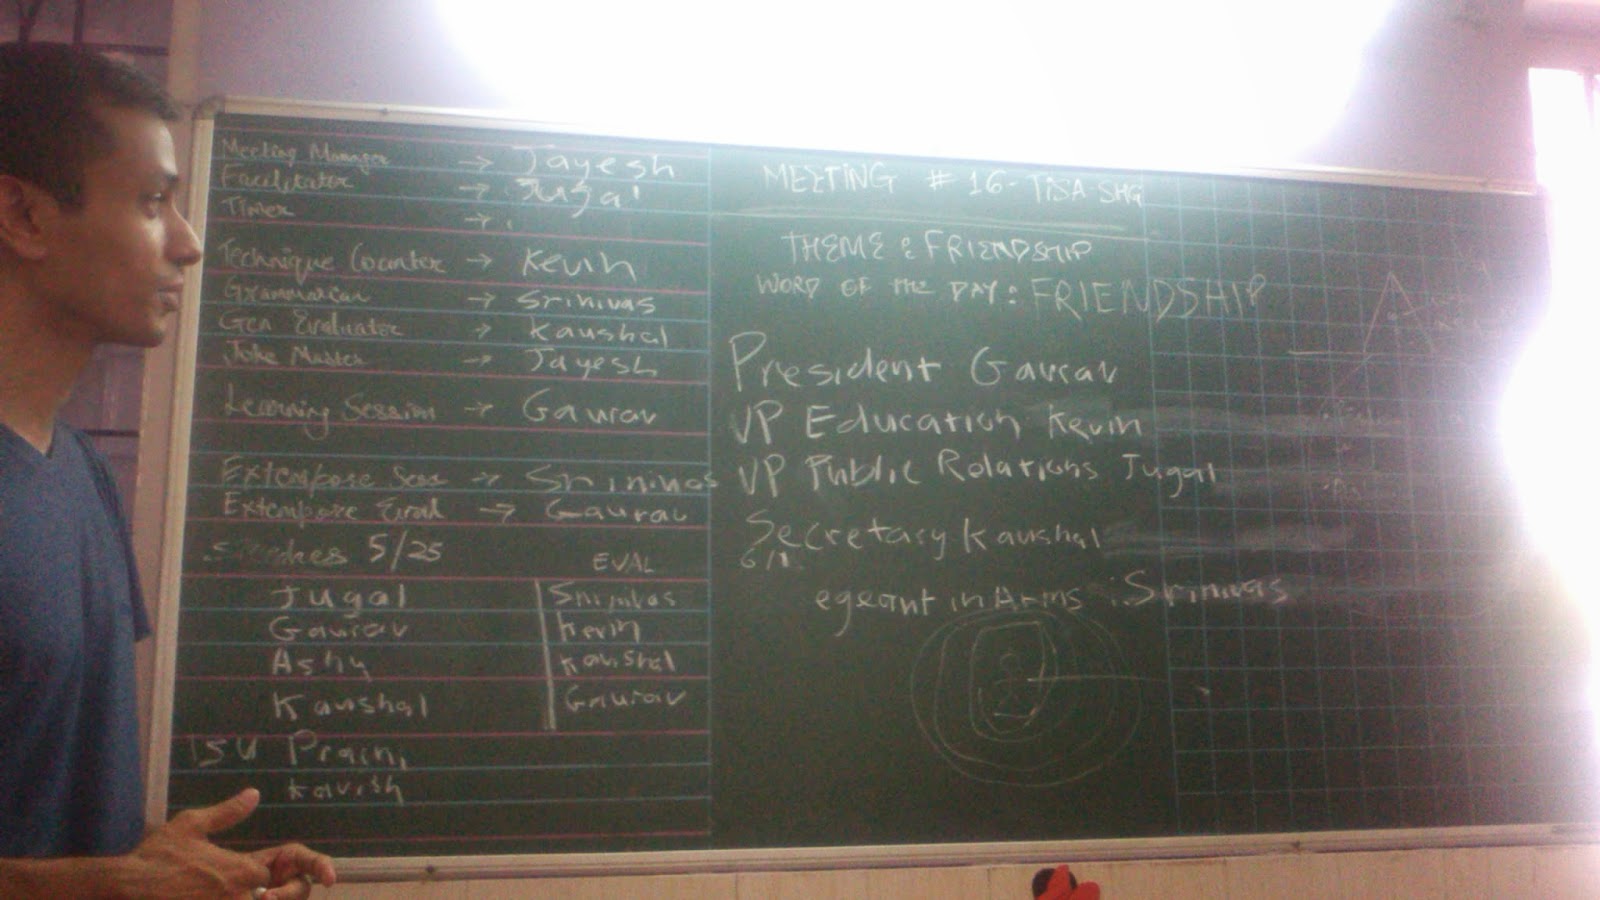 Meeting Manager → Jayesh
Facilitator → Jugal
Timer →
Technique Counter → Kevin
Grammarian → Srinivas
Gen Evaluator → Kaushal
Joke Master → Jayesh
Learning Session → Gaurav
Extempore Sess → Srininas
Extempore Eval → Gaurav
5/25 EVAL
Jugal Srinivas
Gaurav Kevin
Ashy Kaushal
Kaushal Gaurav
ISU
Kavish
MEETING # 16 - TISA SHG
THEME : FRIENDSHIP
WORD OF THE DAY : FRIENDSHIP
President Gaurav
VP Education Kevin
VP Public Relations Jugal
Secretary Kaushal
egeant in Arms : Srinivas